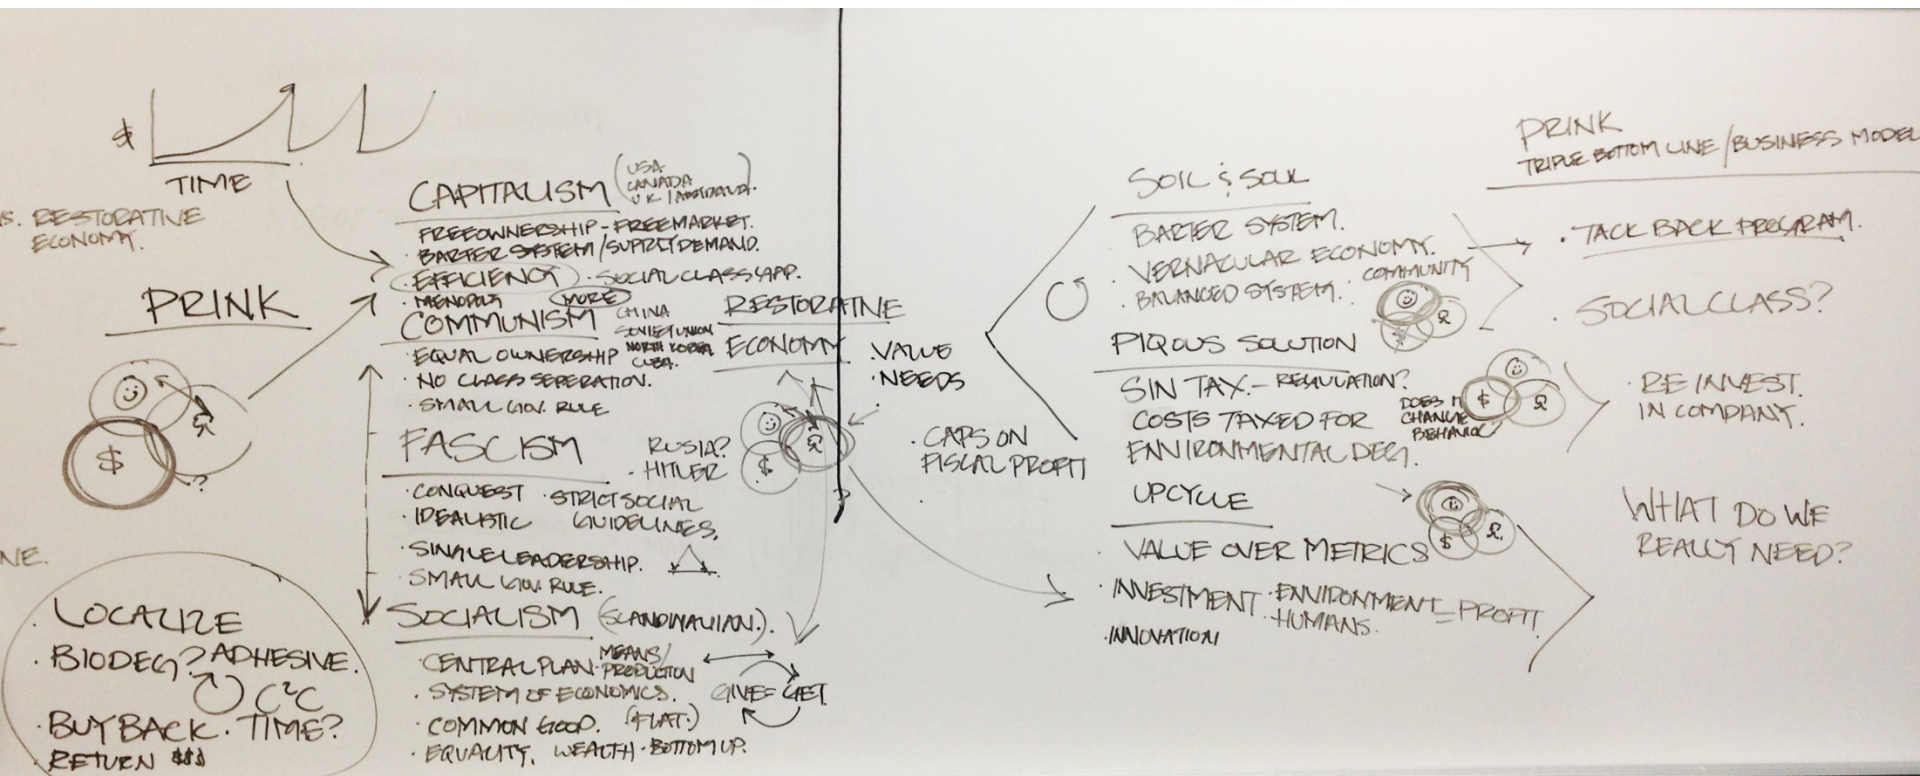 $
TIME
VS. RESTORATIVE
ECONOMY.
PRINK
$
?
NE.
LOCALIZE
BIODEG? ADHESIVE.
C2C
BUYBACK. TIME?
RETURN $$$
CAPITALISM
(USA
CANADA
UK /
FREEOWNERSHIP - FREEMARKET.
BARTER SYSTEM / SUPPLY DEMAND.
EFFICIENCY · SOCIAL CLASS GAP.
MONOPOLY MORE
COMMUNISM
CHINA
SOVIET UNION
NORTH KOREA
CUBA.
EQUAL OWNERSHIP
NO CLASS SEPERATION.
SMALL GOV. RULE
FASCISM
RUSIA?
HITLER
CONQUEST · STRICT SOCIAL
IDEALISTIC GUIDELINES.
SINGLE LEADERSHIP.
SMALL GOV. RULE.
SOCIALISM (SCANDINAVIAN.)
CENTRAL PLAN · MEANS/
PRODUCTION
SYSTEM OF ECONOMICS. GIVE = GET
COMMON GOOD. (FLAT.)
EQUALITY, WEALTH · BOTTOM UP.
RESTORATIVE
ECONOMY
$
?
· VALUE
· NEEDS
· CAPS ON
FISCAL PROFIT
SOIL & SOUL
BARTER SYSTEM.
VERNACULAR ECONOMY.
BALANCED SYSTEM. · COMMUNITY
PIQOUS SOLUTION
SIN TAX. - REGULATION?
COSTS TAXED FOR
ENVIRONMENTAL DEG.
DOES IT
CHANGE
BEHAVIOR?
$
UPCYCLE
VALUE OVER METRICS
$
· INVESTMENT · ENVIRONMENT = PROFIT
HUMANS.
· INNOVATION
PRINK
TRIPLE BOTTOM LINE / BUSINESS MODEL
· TACK BACK PROGRAM.
· SOCIAL CLASS?
· RE INVEST.
IN COMPANY.
WHAT DO WE
REALLY NEED?